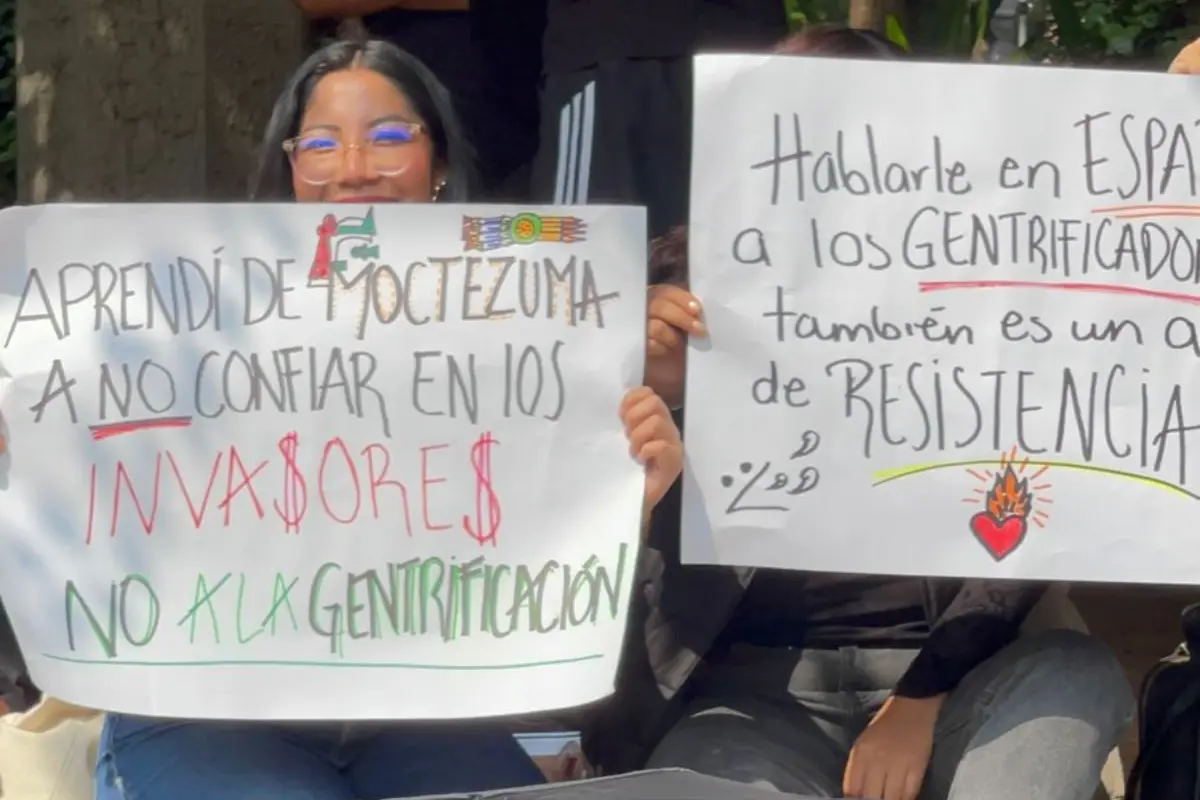 APRENDÍ DE MOCTEZUMA
A NO CONFIAR EN LOS
INVA$ORE$
NO A LA GENTRIFICACIÓN
Hablarle en ESPA
a los GENTRIFICADO
también es un a
de RESISTENCIA